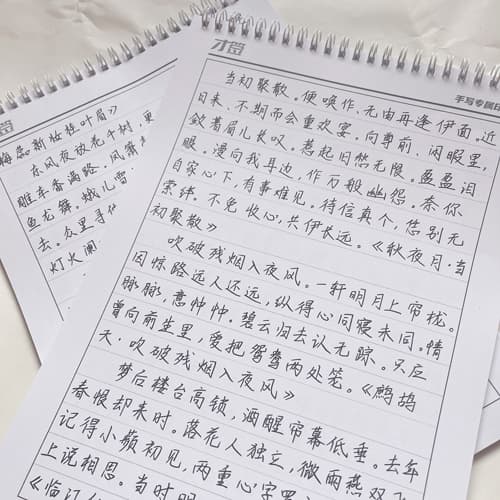 梅蕊新妆桂叶眉》
东风夜放花千树,更
雕车香满路。凤箫
鱼龙舞。蛾儿雪
去。众里寻他
灯火阑
手写专属
当初聚散。便唤作、无由再逢伊面。近
日来、不期而会重欢宴。向尊前、闲暇里,
敛着眉儿长叹。惹起旧愁无限。盈盈泪
眼。漫向我耳边,作万般幽怨。奈你
自家心下,有事难见。待信真个,恁别无
萦绊。不免收心,共伊长远。《秋夜月·当
初聚散》
吹破残烟入夜风。一轩明月上帘栊。
因惊路远人还远,纵得心同寝未同。情
脉脉,意忡忡。碧云归去认无踪。只应
曾向前生里,爱把鸳鸯两处笼。《鹧鸪
天·吹破残烟入夜风》
梦后楼台高锁,酒醒帘幕低垂。去年
春恨却来时。落花人独立,微雨燕双
记得小蘋初见,两重心字罗
上说相思。当时明
《临江